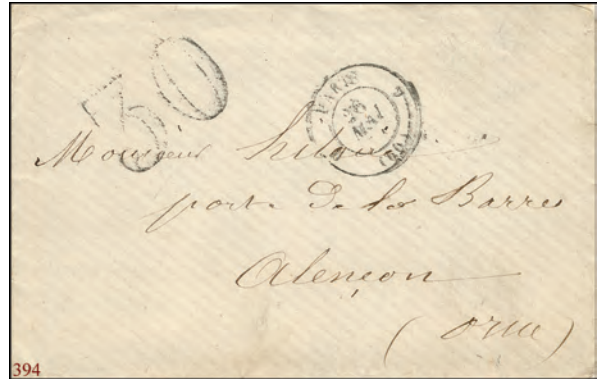 30
PARIS
26
MAI
(60)
Monsieur
porte De la Barre
Alençon
(Orne)
394